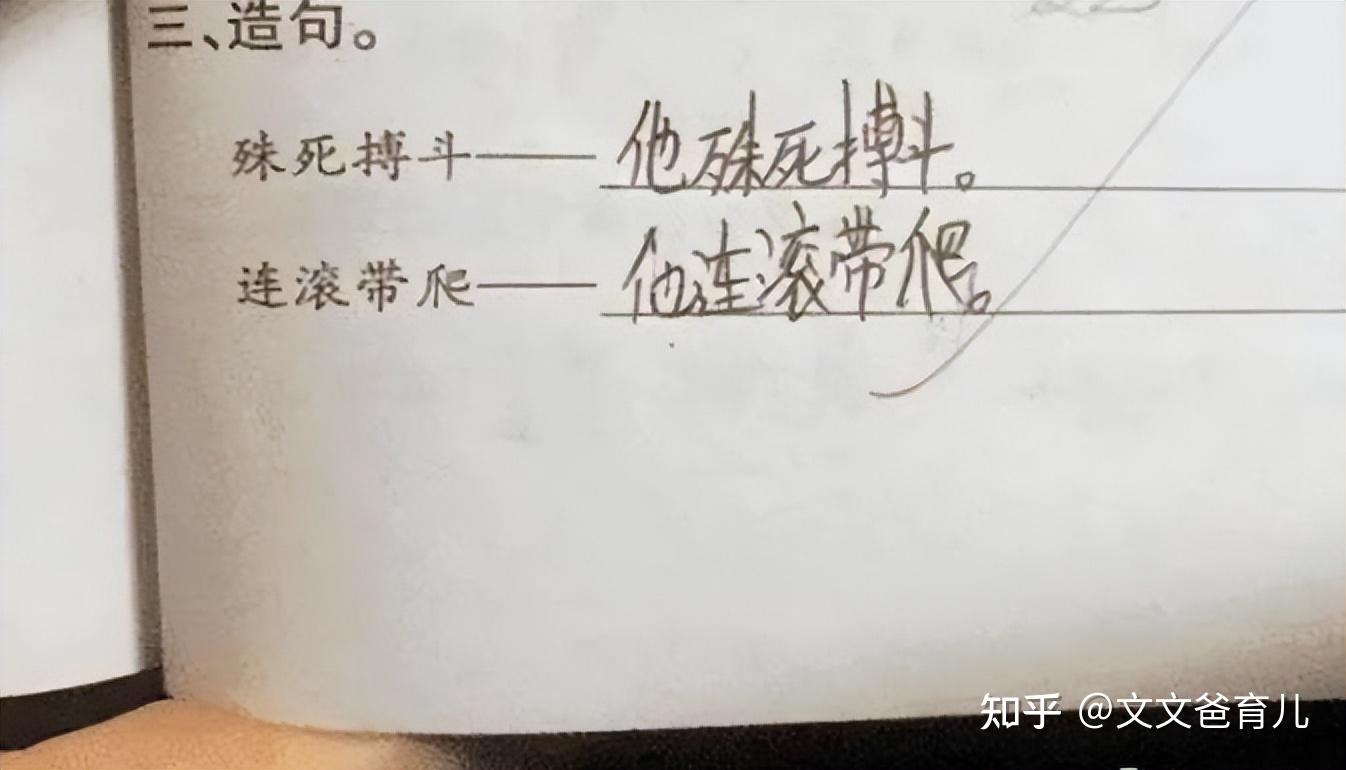 三、造句。
殊死搏斗——他殊死搏斗。
连滚带爬——他连滚带爬。
知乎 @文文爸育儿